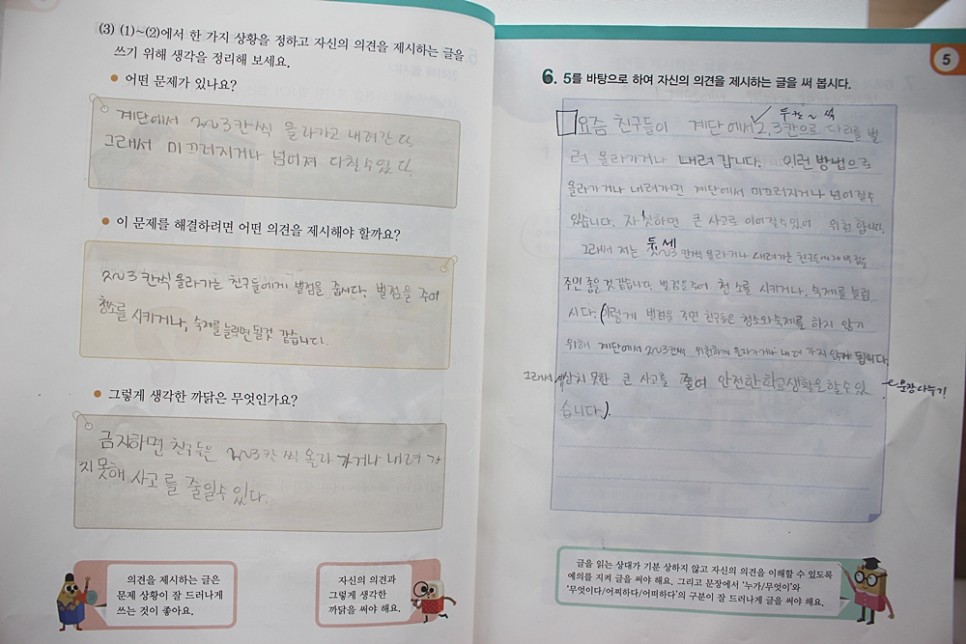 (3) (1)~(2)에서 한 가지 상황을 정하고 자신의 의견을 제시하는 글을
쓰기 위해 생각을 정리해 보세요.
어떤 문제가 있나요?
계단에서 2~3칸씩 올라가고 내려간다.
그래서 미끄러지거나 넘어져 다칠수있다.
이 문제를 해결하려면 어떤 의견을 제시해야 할까요?
2~3칸씩 올라가는 친구들에게 벌점을 줍시다. 벌점을 주어
청소를 시키거나, 숙제를 늘리면 될것 같습니다.
그렇게 생각한 까닭은 무엇인가요?
금지하면 친구들은 2~3칸 씩 올라 가거나 내려 가
지 못해 사고를 줄일수 있다.
의견을 제시하는 글은
문제 상황이 잘 드러나게
쓰는 것이 좋아요.
자신의 의견과
그렇게 생각한
까닭을 써야 해요.
5
6. 5를 바탕으로 하여 자신의 의견을 제시하는 글을 써 봅시다.
요즘 친구들이 계단에서 2,3칸으로 다리를 벌
려 올라가거나 내려 갑니다. 이런 방법으로
올라가거나 내려가면 계단에서 미끄러지거나 넘어질수
있습니다. 자칫하면 큰 사고로 이어질수있어 위험 합니다.
두세
그래서 저는 2~3칸씩 올라가거나 내려가는 친구들에게 벌점을
주면 좋을 것 같습니다. 벌점을 주어 청소를 시키거나, 숙제를 늘립
시다. (이렇게 벌점을 주면 친구들은 청소와 숙제를 하지 않기
위해 계단에서 2~3칸씩 위험하게 올라가거나 내려 가지 않게 됩니다.
그래서 생각지 못한 큰 사고를 줄여 안전한 학교생활을 할수 있
문장나누기
습니다.).
글을 읽는 상대가 기분 상하지 않고 자신의 의견을 이해할 수 있도록
예의를 지켜 글을 써야 해요. 그리고 문장에서 ‘누가/무엇이’와
‘무엇이다/어찌하다/어떠하다’의 구분이 잘 드러나게 글을 써야 해요.